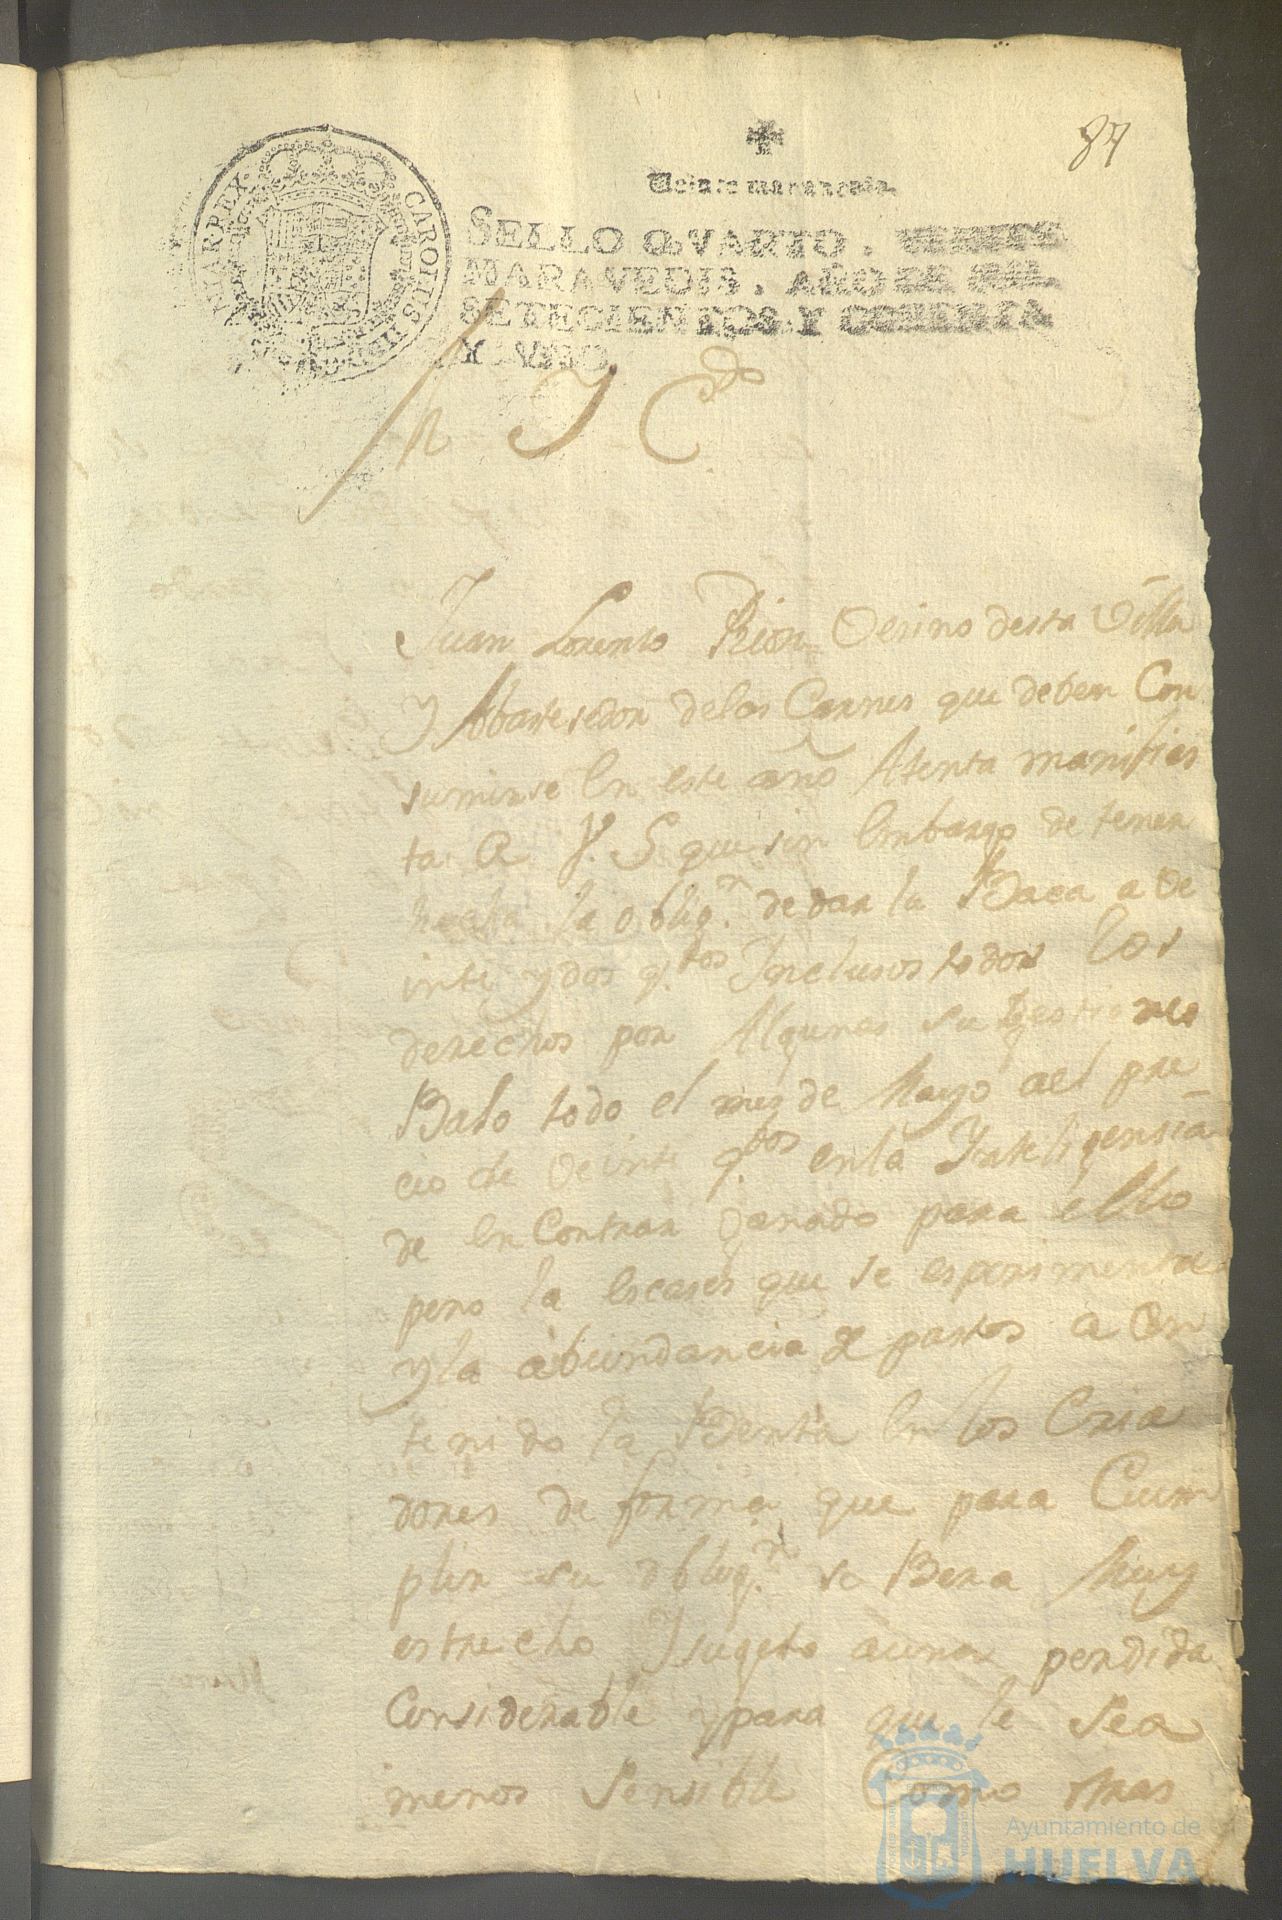 87
Veinte maravedis.
SELLO QVARTO, VEINTE
MARAVEDIS, AÑO DE MIL
SETECIENTOS Y OCHENTA
Y VNO.
CAROLUS III HIAR REX
Y C.do
Juan Lorento Rion Vecino desta Villa
y Abastesedor delas Carnes que deben Con
sumirse en este año Atenta manifies
ta A V. S que sin embargo de tener
hecha la oblig.n de dar la Baca a Ve
inte y dos q.tos Inclusos todos los
derechos por Algunas su gestiones
Bajo todo el mes de Mayo ael pre
cio de veinte q.tos en la Inteligensia
de encontrar ganado para ello
pero la escases que se esperimenta
y la abundancia de pastos a con
tenido la Benta en los Cria
dores de forma que para Cum
plir su oblig.n se Bera Muy
estrecho Y sugeto a una perdida
Considerable y para que le sea
menos Sensible Como otras
Ayuntamiento de
HUELVA